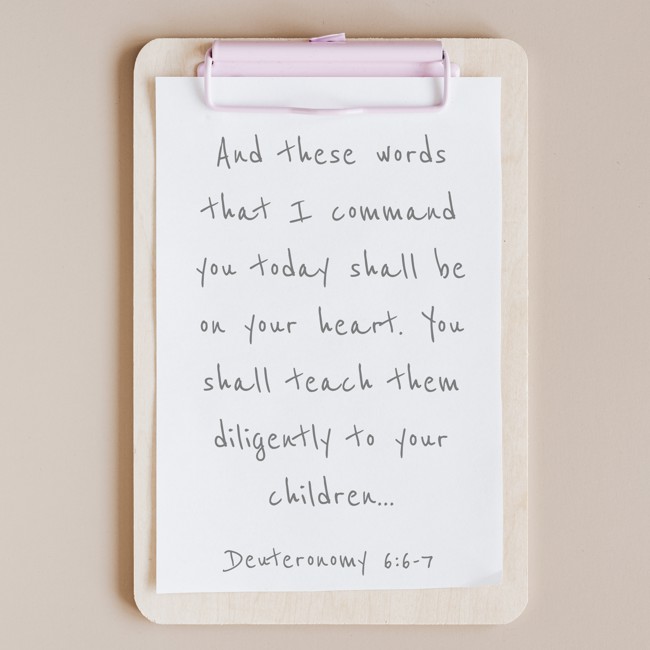 And these words
that I command
you today shall be
on your heart. You
shall teach them
diligently to your
children...
Deuteronomy 6:6-7